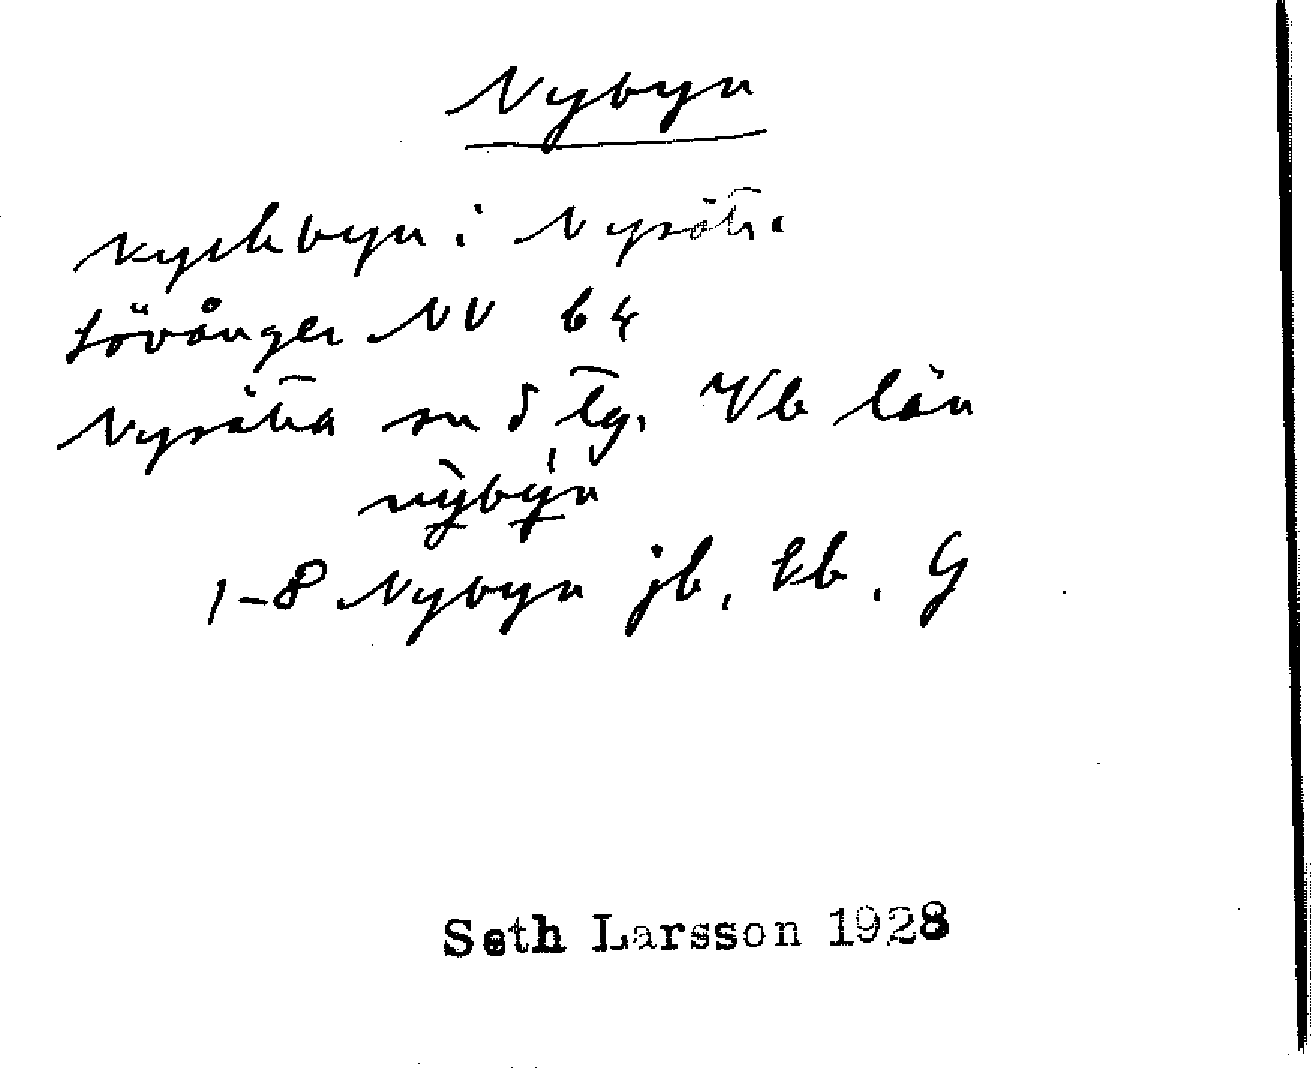 Nybyn
kyrkbyn i Nysätra
Lövånger NV b 4
Nysätra sn s tg. Vb län
nỳbýn
1-8 Nybyn jb, kb, G
Seth Larsson 1928